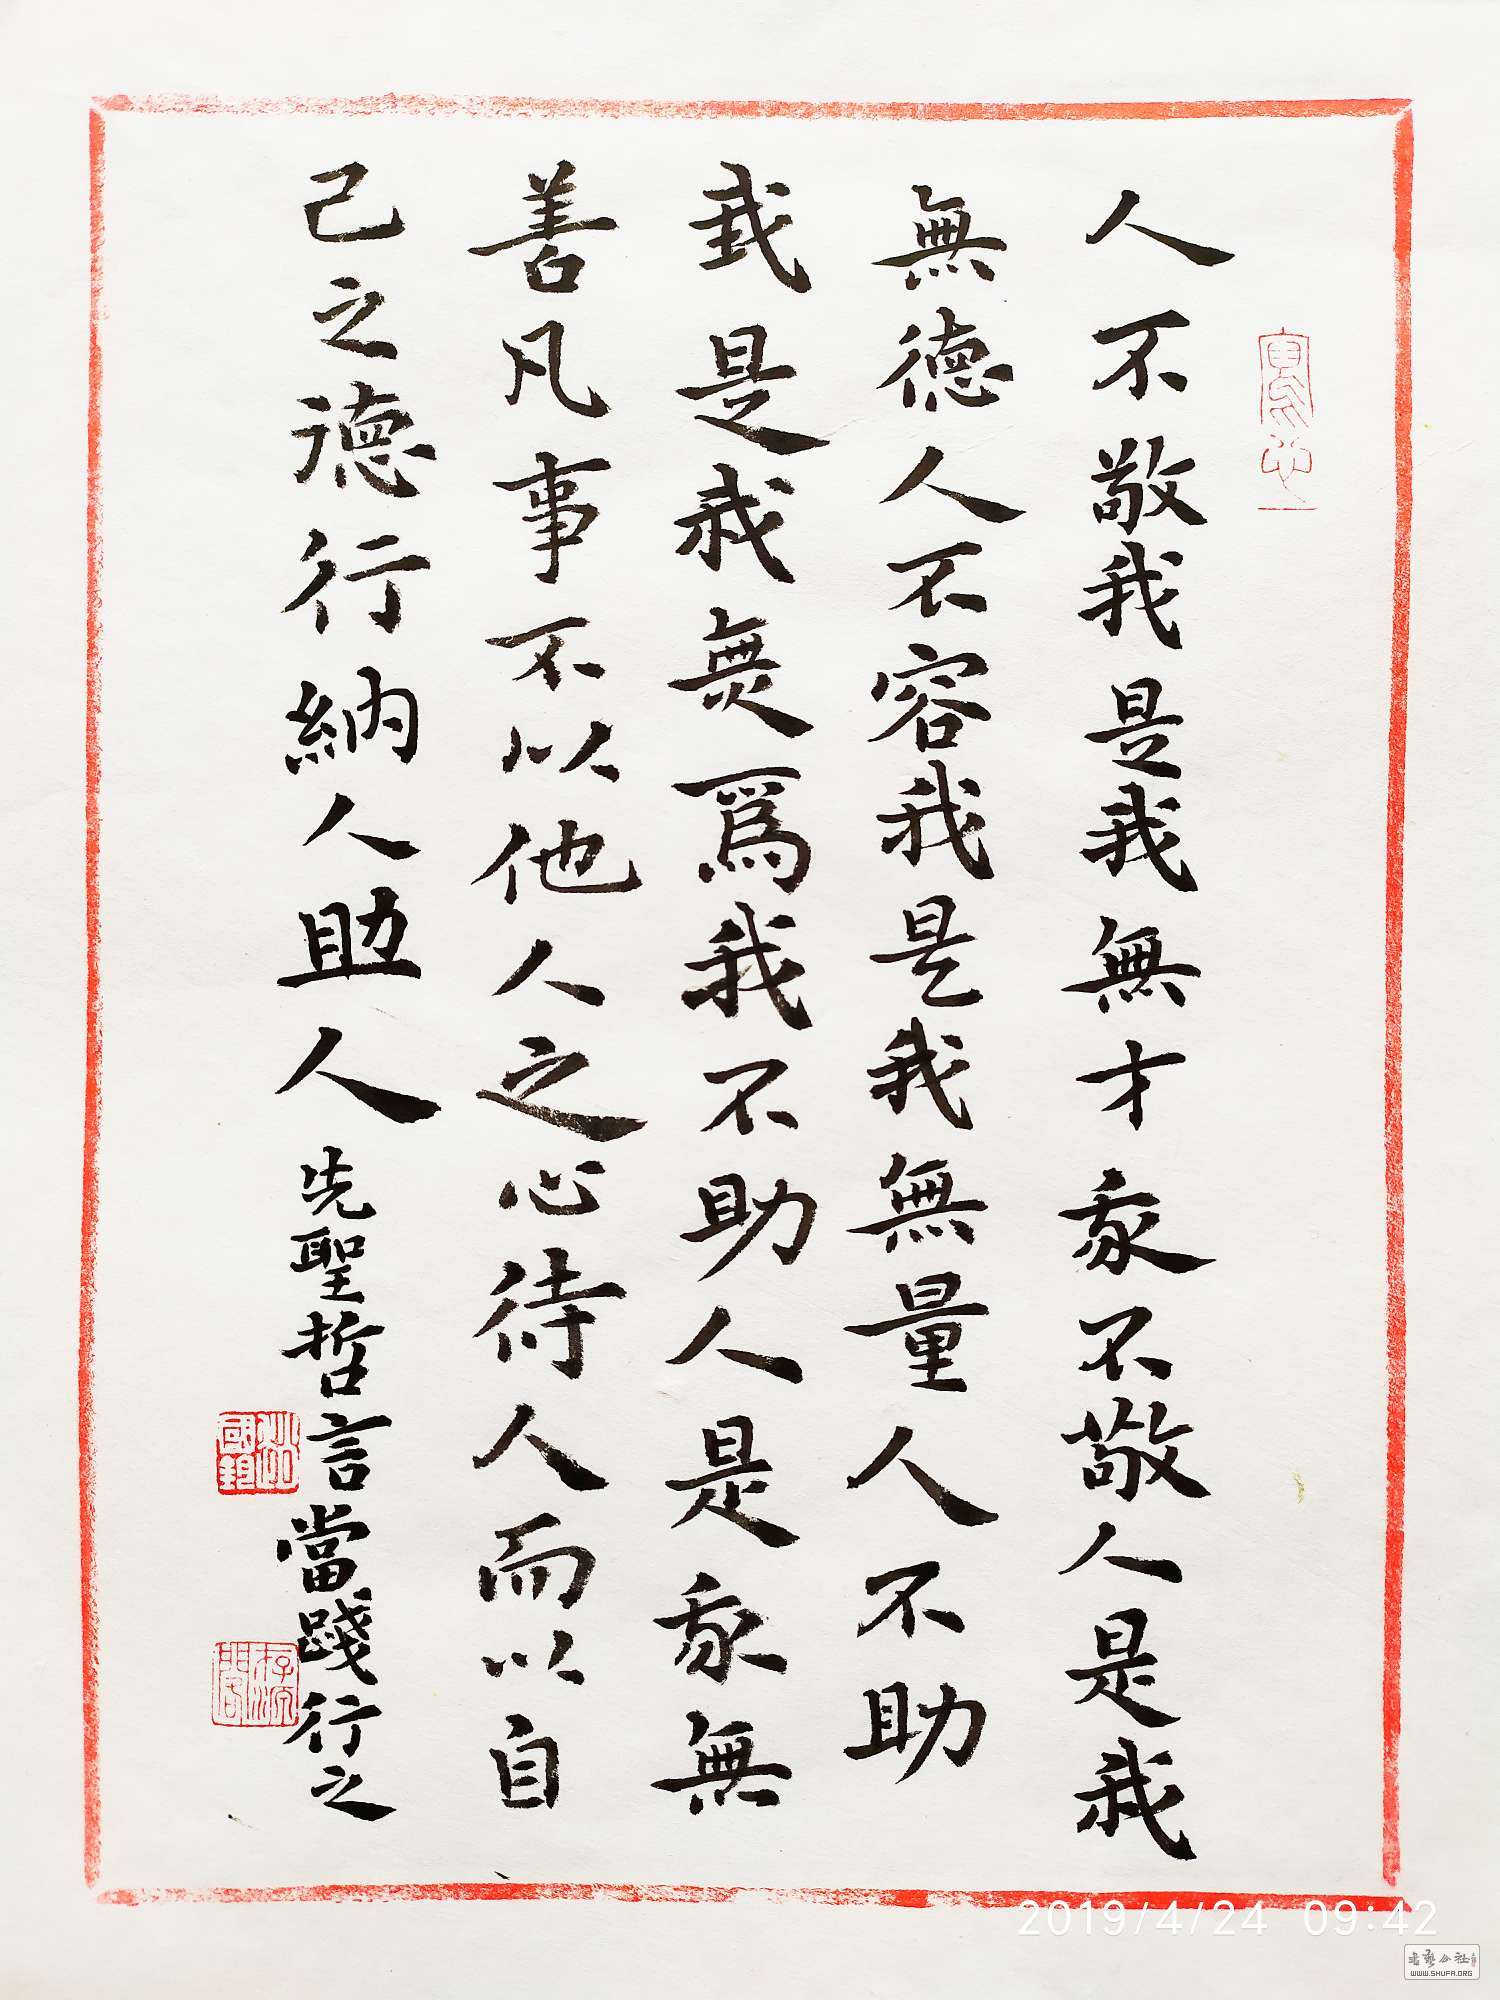 人不敬我是我無才我不敬人是我
無德人不容我是我無量人不助
我是我無爲我不助人是我無
善凡事不以他人之心待人而以自
己之德行納人助人
先聖哲言當踐行之
2019/4/24 09:42
WWW.SHUFA.ORG